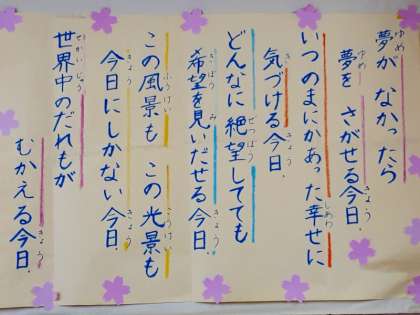 夢が なかったら
夢を さがせる今日.
いつのまにかあった幸せに
気づける今日.
どんなに絶望してても
希望を見いだせる今日.
この風景も この光景も
今日にしかない今日.
世界中のだれもが
むかえる今日.